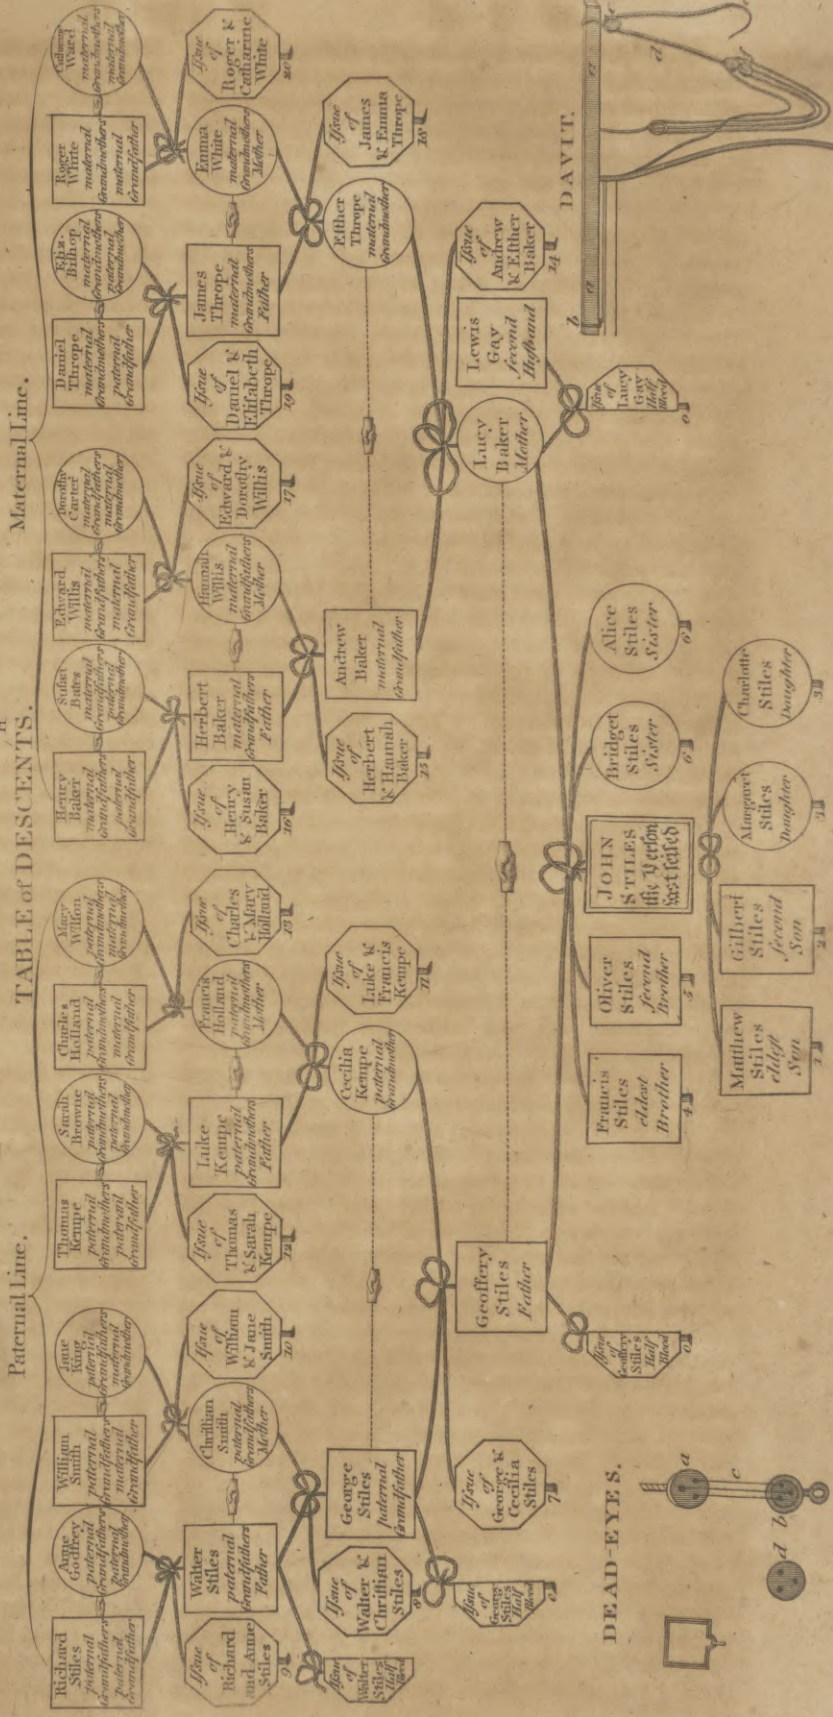 TABLE of DESCENTS.
Paternal Line.
Maternal Line.
Richard
Stiles
paternal
Grandfathers
paternal
Grandfather
Anne
Godfrey
paternal
Grandfathers
paternal
Grandmother
William
Smith
paternal
Grandfathers
maternal
Grandfather
Jane
King
paternal
Grandfathers
maternal
Grandmother
Thomas
Kempe
paternal
Grandmothers
paternal
Grandfather
Sarah
Browne
paternal
Grandmothers
paternal
Grandmother
Charles
Holland
paternal
Grandmothers
maternal
Grandfather
Mary
Wilson
paternal
Grandmothers
maternal
Grandmother
Henry
Baker
maternal
Grandfathers
paternal
Grandfather
Susan
Bates
maternal
Grandfathers
paternal
Grandmother
Edward
Willis
maternal
Grandfathers
maternal
Grandfather
Dorothy
Carter
maternal
Grandfathers
maternal
Grandmother
Daniel
Thrope
maternal
Grandmothers
paternal
Grandfather
Eliz.
Bishop
maternal
Grandmothers
paternal
Grandmother
Roger
White
maternal
Grandmothers
maternal
Grandfather
Ward
maternal
Grandmothers
maternal
Grandmother
Issue
of
Richard
and Anne
Stiles
9
Walter
Stiles
paternal
Grandfathers
Father
Christian
Smith
paternal
Grandfathers
Mother
Issue
of
William
& Jane
Smith
10
Issue
of
Thomas
& Sarah
Kempe
12
Luke
Kempe
paternal
Grandmothers
Father
Francis
Holland
paternal
Grandmothers
Mother
Issue
of
Charles
& Mary
Holland
13
Issue
of
Henry
& Susan
Baker
16
Herbert
Baker
maternal
Grandfathers
Father
Hannah
Willis
maternal
Grandfathers
Mother
Issue
of
Edward &
Dorothy
Willis
17
Issue
of
Daniel &
Elisabeth
Thrope
19
James
Thrope
maternal
Grandmothers
Father
Emma
White
maternal
Grandmothers
Mother
Issue
of
Roger &
Catharine
White
20
Issue
of
Walter
Stiles
Half
Blood
Issue
of
Walter &
Christian
Stiles
8
George
Stiles
paternal
Grandfather
Cecilia
Kempe
paternal
Grandmother
Issue
of
Luke &
Francis
Kempe
11
Issue
of
Herbert
& Hannah
Baker
15
Andrew
Baker
maternal
Grandfather
Esther
Thrope
maternal
Grandmother
Issue
of
James
& Emma
Thrope
18
Issue
of
George
Stiles
Half
Blood
0
Issue
of
George &
Cecilia
Stiles
7
Geoffery
Stiles
Father
Lucy
Baker
Mother
Lewis
Gay
second
Husband
Issue
of
Andrew
& Esther
Baker
14
Issue
of
Geoffery
Stiles
Half
Blood
0
Issue
of
Lucy
Gay
Half
Blood
0
Francis
Stiles
eldest
Brother
4
Oliver
Stiles
second
Brother
5
JOHN
STILES
the Person
last seised
Bridget
Stiles
Sister
6
Alice
Stiles
Sister
6
Matthew
Stiles
eldest
Son
1
Gilbert
Stiles
second
Son
2
Margaret
Stiles
Daughter
3
Charlotte
Stiles
Daughter
3
DEAD-EYES.
a
c
b
d
DAVIT.
b
a
a
c
d